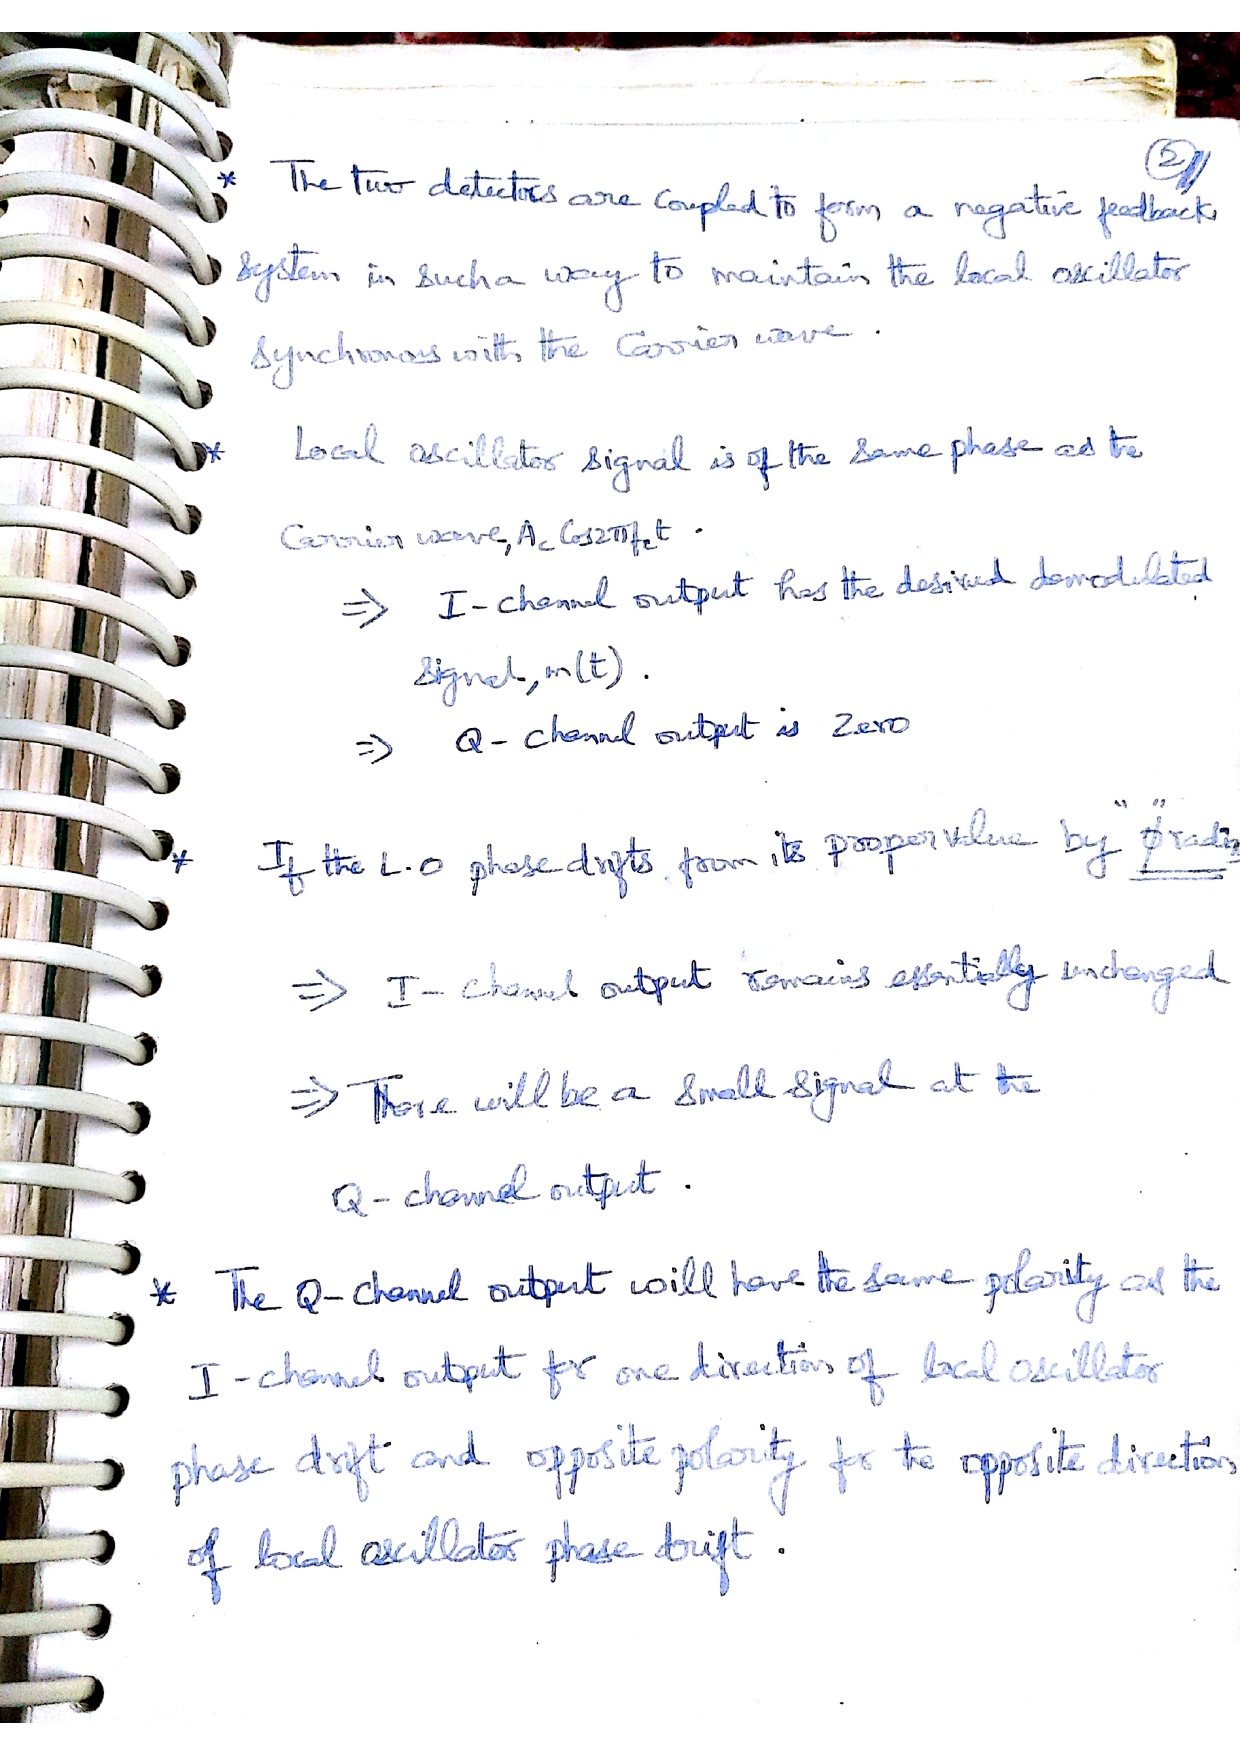 5
* The two detectors are coupled to form a negative feedback
system in such a way to maintain the local oscillator
synchronous with the Carrier wave.
* Local oscillator signal is of the same phase as the
Carrier wave, Ac Cos2πfct.
⇒ I-channel output has the desired demodulated
signal, m(t).
⇒ Q-channel output is Zero
* If the L.O phase drifts from its proper value by "ϕ" radi
⇒ I-channel output remains essentially unchanged
⇒ There will be a small signal at the
Q-channel output.
* The Q-channel output will have the same polarity as the
I-channel output for one direction of local oscillator
phase drift and opposite polarity for the opposite direction
of local oscillator phase drift.